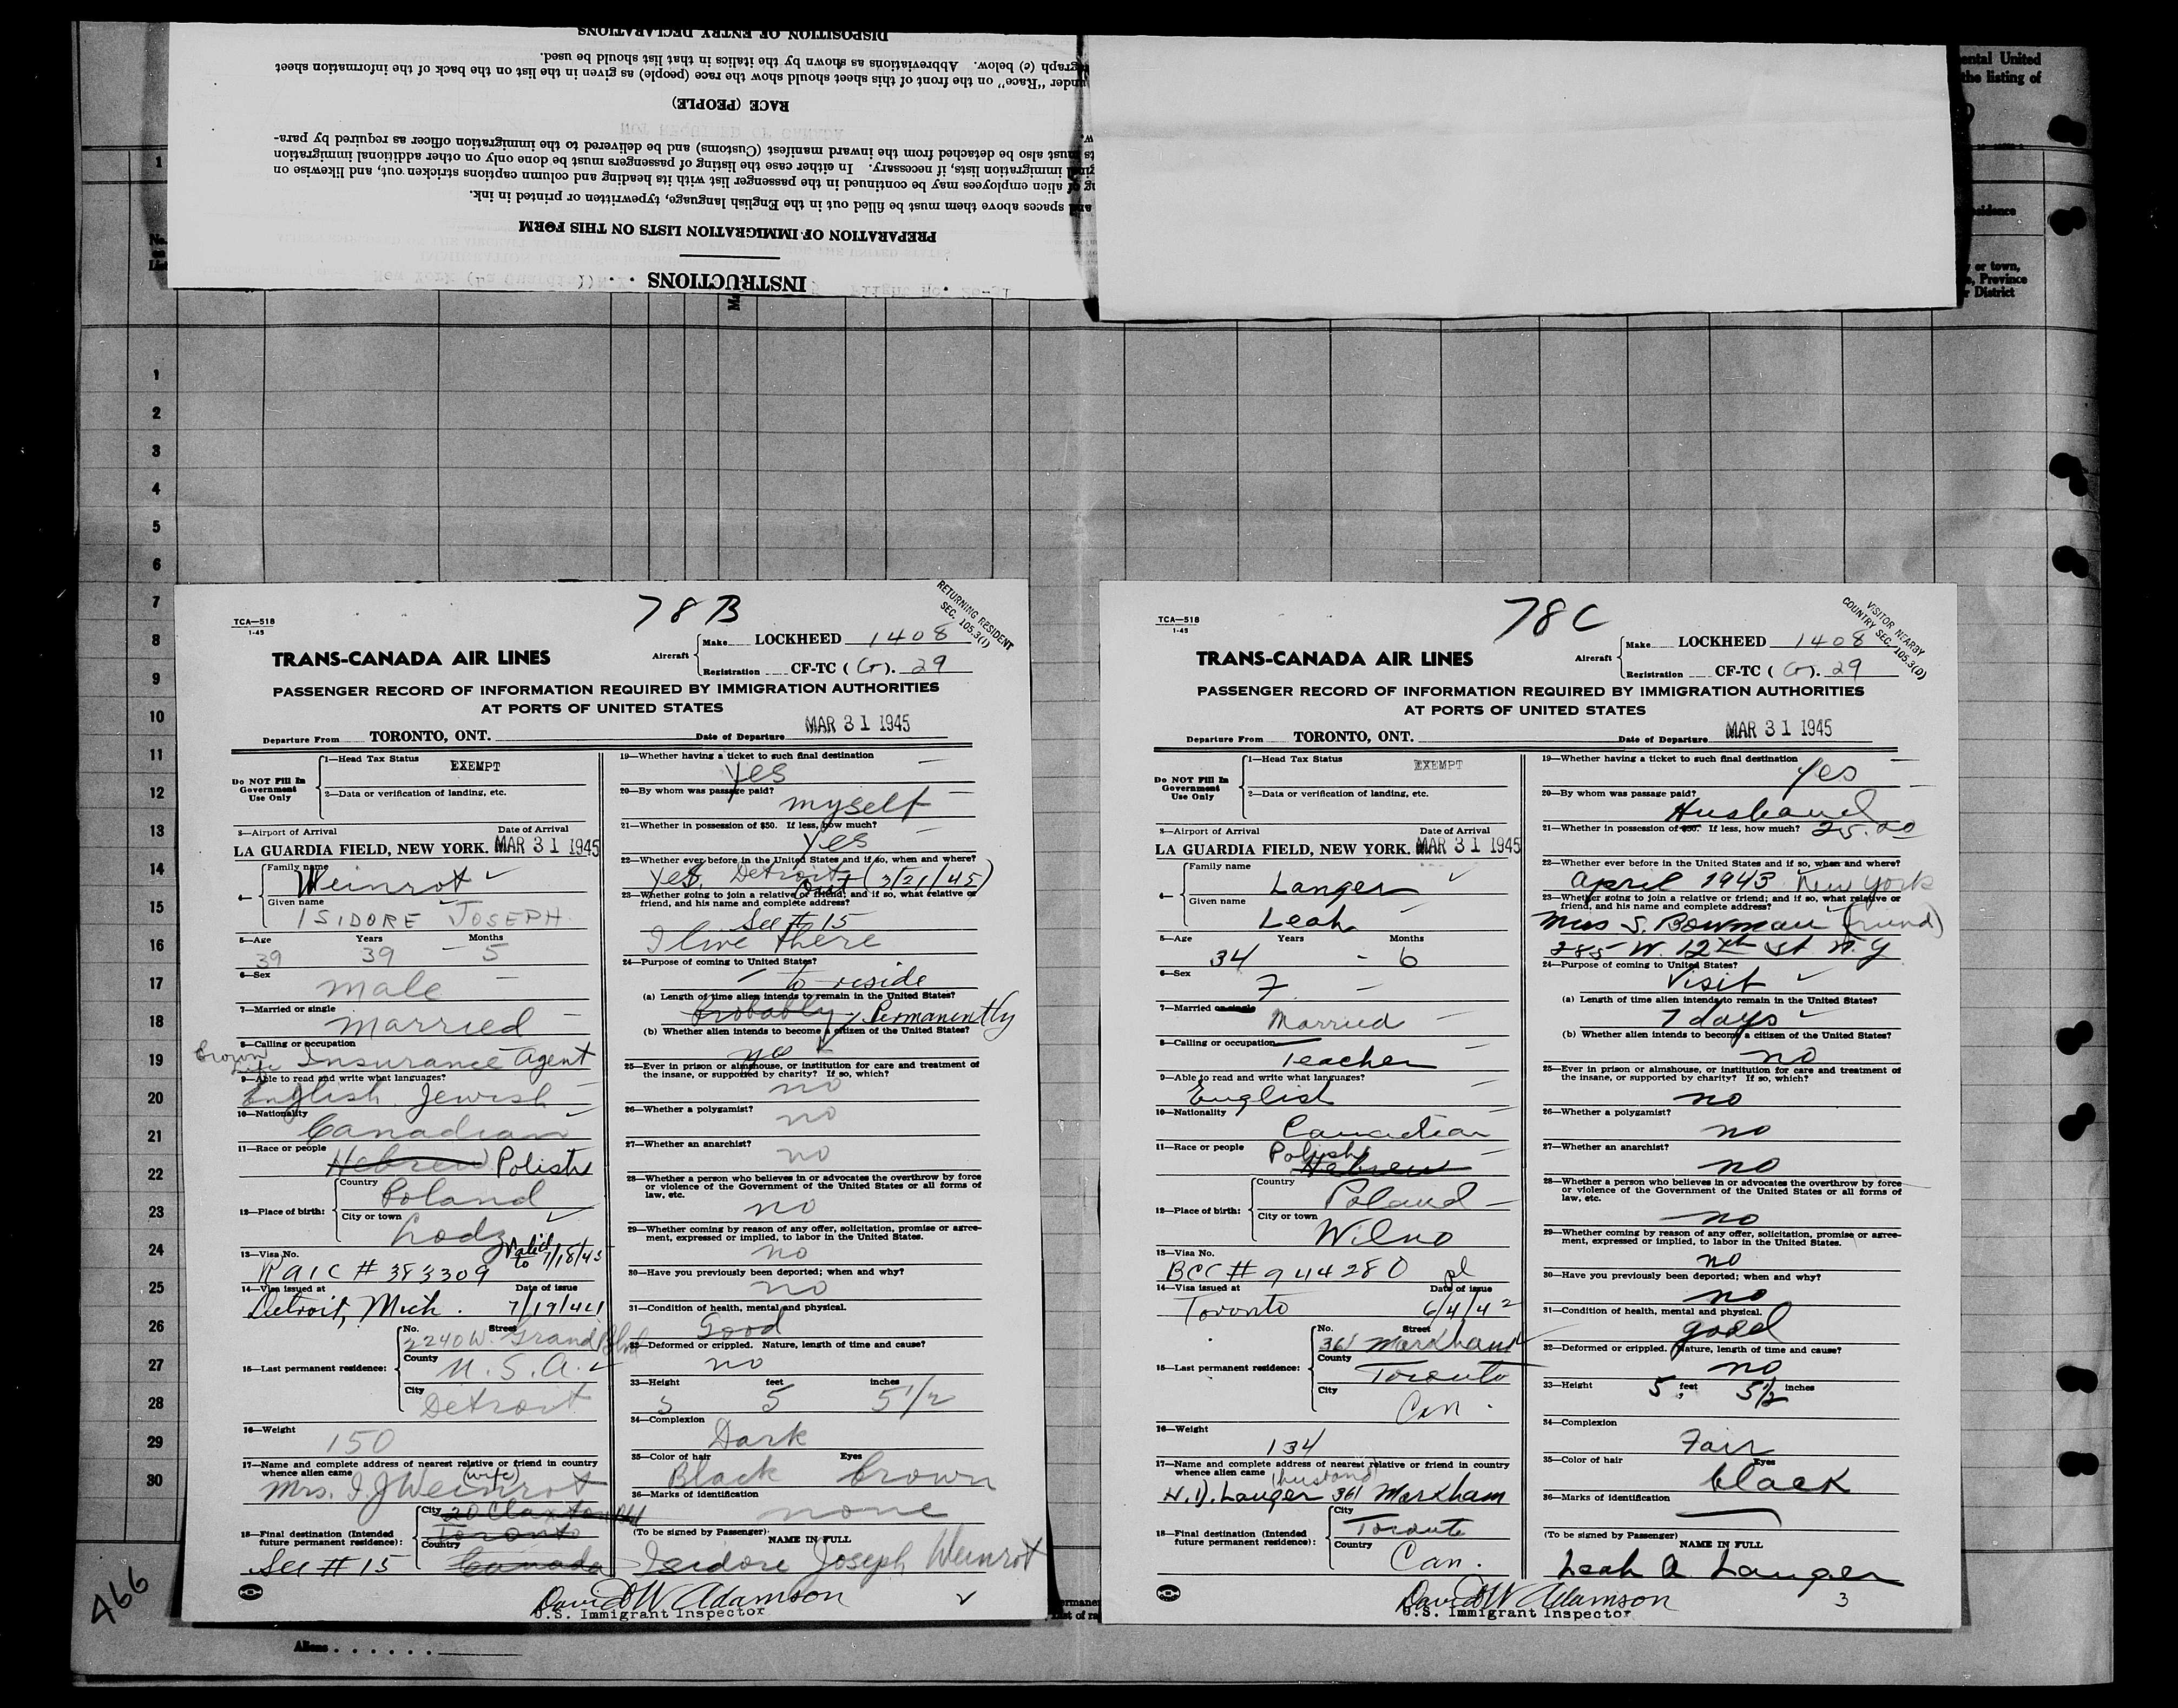 DISPOSITION OF ENTRY DECLARATIONS
graph (c) below. Abbreviations as shown by the italics in that list should be used.
under "Race" on the front of this sheet should show the race (people) as given in the list on the back of the information sheet
RACE (PEOPLE)
ts must also be detached from the inward manifest (Customs) and be delivered to the immigration officer as required by para-
immigration lists, if necessary. In either case the listing of passengers must be done only on other additional immigration
of alien employees may be continued in the passenger list with its heading and column captions stricken out, and likewise on
spaces above them must be filled out in the English language, typewritten or printed in ink.
PREPARATION OF IMMIGRATION LISTS ON THIS FORM
INSTRUCTIONS
ental United
the listing of
sidence
or town,
Province
District
1
No.
on
List
1
2
3
4
5
6
7
8
9
10
11
12
13
14
15
16
17
18
19
20
21
22
23
24
25
26
27
28
29
30
466
Aliens
78 B
RETURNING RESIDENT
SEC. 105.3(1)
TCA—518
1-45
Aircraft
Make LOCKHEED 1408
Registration CF-TC (G). 29
TRANS-CANADA AIR LINES
PASSENGER RECORD OF INFORMATION REQUIRED BY IMMIGRATION AUTHORITIES
AT PORTS OF UNITED STATES
Departure From TORONTO, ONT. Date of Departure MAR 31 1945
Do NOT Fill In Government Use Only
1—Head Tax Status EXEMPT
2—Data or verification of landing, etc.
3—Airport of Arrival Date of Arrival
LA GUARDIA FIELD, NEW YORK. MAR 31 1945
4—
Family name
Weinrot
Given name
ISIDORE JOSEPH
5—Age Years Months
39 39 5
6—Sex
male
7—Married or single
married
8—Calling or occupation
Crown Life Insurance Agent
9—Able to read and write what languages?
English Jewish
10—Nationality
Canadian
11—Race or people
Hebrew Polish
12—Place of birth:
Country
Poland
City or town
Lodz
13—Visa No. Valid to 7/18/45
RAIC # 383309
14—Visa issued at Date of issue
Detroit, Mich. 7/19/44
15—Last permanent residence:
No. Street
2240 W. Grand Blvd
County
U.S.A.
City
Detroit
16—Weight
150
17—Name and complete address of nearest relative or friend in country
whence alien came (wife)
Mrs. I. J Weinrot
18—Final destination (Intended
future permanent residence):
City 20 Claxton Blvd
Toronto
Country
Canada
See # 15
19—Whether having a ticket to such final destination
yes
20—By whom was passage paid?
myself
21—Whether in possession of $50. If less, how much?
yes
22—Whether ever before in the United States and if so, when and where?
yes, Detroit (3/21/45)
Out
23—Whether going to join a relative or friend; and if so, what relative or
friend, and his name and complete address?
See # 15
I live there
24—Purpose of coming to United States?
to reside
(a) Length of time alien intends to remain in the United States?
Probably Permanently
(b) Whether alien intends to become a citizen of the United States?
yes
25—Ever in prison or almshouse, or institution for care and treatment of
the insane, or supported by charity? If so, which?
no
26—Whether a polygamist?
no
27—Whether an anarchist?
no
28—Whether a person who believes in or advocates the overthrow by force
or violence of the Government of the United States or all forms of
law, etc.
no
29—Whether coming by reason of any offer, solicitation, promise or agree-
ment, expressed or implied, to labor in the United States.
no
30—Have you previously been deported; when and why?
no
31—Condition of health, mental and physical.
Good
32—Deformed or crippled. Nature, length of time and cause?
no
33—Height feet inches
5 5 5 1/2
34—Complexion
Dark
35—Color of hair Eyes
Black brown
36—Marks of identification
none
(To be signed by Passenger)
NAME IN FULL
Isidore Joseph Weinrot
David W Adamson
U.S. Immigrant Inspector
78C
VISITOR NEARBY
COUNTRY SEC. 105.3(D)
TCA—518
1-45
Aircraft
Make LOCKHEED 1408
Registration CF-TC (G). 29
TRANS-CANADA AIR LINES
PASSENGER RECORD OF INFORMATION REQUIRED BY IMMIGRATION AUTHORITIES
AT PORTS OF UNITED STATES
Departure From TORONTO, ONT. Date of Departure MAR 31 1945
Do NOT Fill In Government Use Only
1—Head Tax Status EXEMPT
2—Data or verification of landing, etc.
3—Airport of Arrival Date of Arrival
LA GUARDIA FIELD, NEW YORK. MAR 31 1945
4—
Family name
Langer
Given name
Leah
5—Age Years Months
34 - 6
6—Sex
F
7—Married or single
Married
8—Calling or occupation
Teacher
9—Able to read and write what languages?
English
10—Nationality
Canadian
11—Race or people
Polish
Hebrew
12—Place of birth:
Country
Poland
City or town
Wilno
13—Visa No.
BCC # 944280 pl
14—Visa issued at Date of issue
Toronto 6/4/42
15—Last permanent residence:
No. Street
361 Markham
County
Toronto
City
Can.
16—Weight
134
17—Name and complete address of nearest relative or friend in country
whence alien came (husband)
H. D. Langer 361 Markham
18—Final destination (Intended
future permanent residence):
City
Toronto
Country
Can.
19—Whether having a ticket to such final destination
Yes
20—By whom was passage paid?
Husband
21—Whether in possession of $50. If less, how much? 25.00
22—Whether ever before in the United States and if so, when and where?
April 1943 New York
23—Whether going to join a relative or friend; and if so, what relative or
friend, and his name and complete address?
Mrs S. Bowman (friend)
285 W. 12th St. N.Y
24—Purpose of coming to United States?
Visit
(a) Length of time alien intends to remain in the United States?
7 days
(b) Whether alien intends to become a citizen of the United States?
no
25—Ever in prison or almshouse, or institution for care and treatment of
the insane, or supported by charity? If so, which?
no
26—Whether a polygamist?
no
27—Whether an anarchist?
no
28—Whether a person who believes in or advocates the overthrow by force
or violence of the Government of the United States or all forms of
law, etc.
no
29—Whether coming by reason of any offer, solicitation, promise or agree-
ment, expressed or implied, to labor in the United States.
no
30—Have you previously been deported; when and why?
no
31—Condition of health, mental and physical.
good
32—Deformed or crippled. Nature, length of time and cause?
no
33—Height 5 feet 5 1/2 inches
34—Complexion
Fair
35—Color of hair Eyes
black
36—Marks of identification
(To be signed by Passenger)
NAME IN FULL
Leah A Langer
David W Adamson
U.S. Immigrant Inspector
3